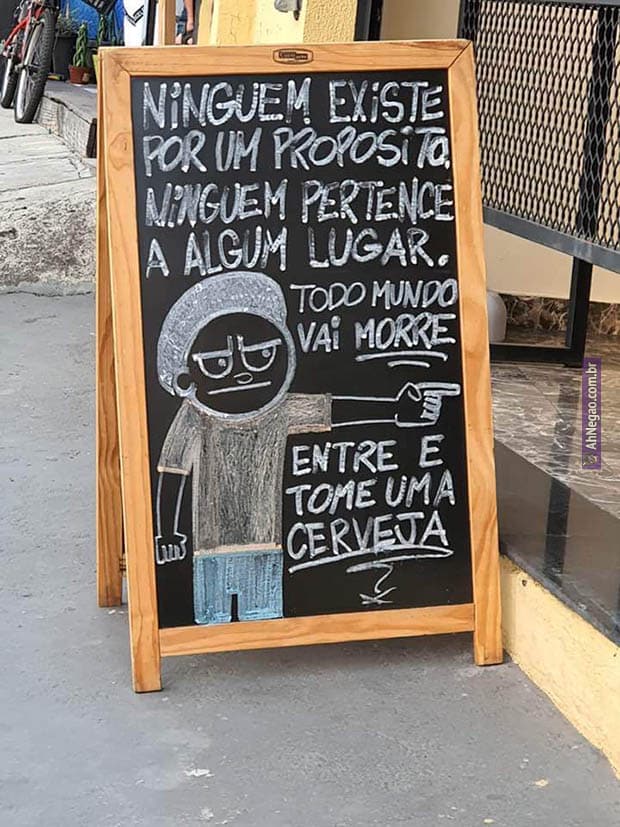 NINGUEM EXISTE
POR UM PROPOSITO,
NINGUEM PERTENCE
A ALGUM LUGAR.
TODO MUNDO
VAI MORRE
ENTRE E
TOME UMA
CERVEJA
AhNegao.com.br